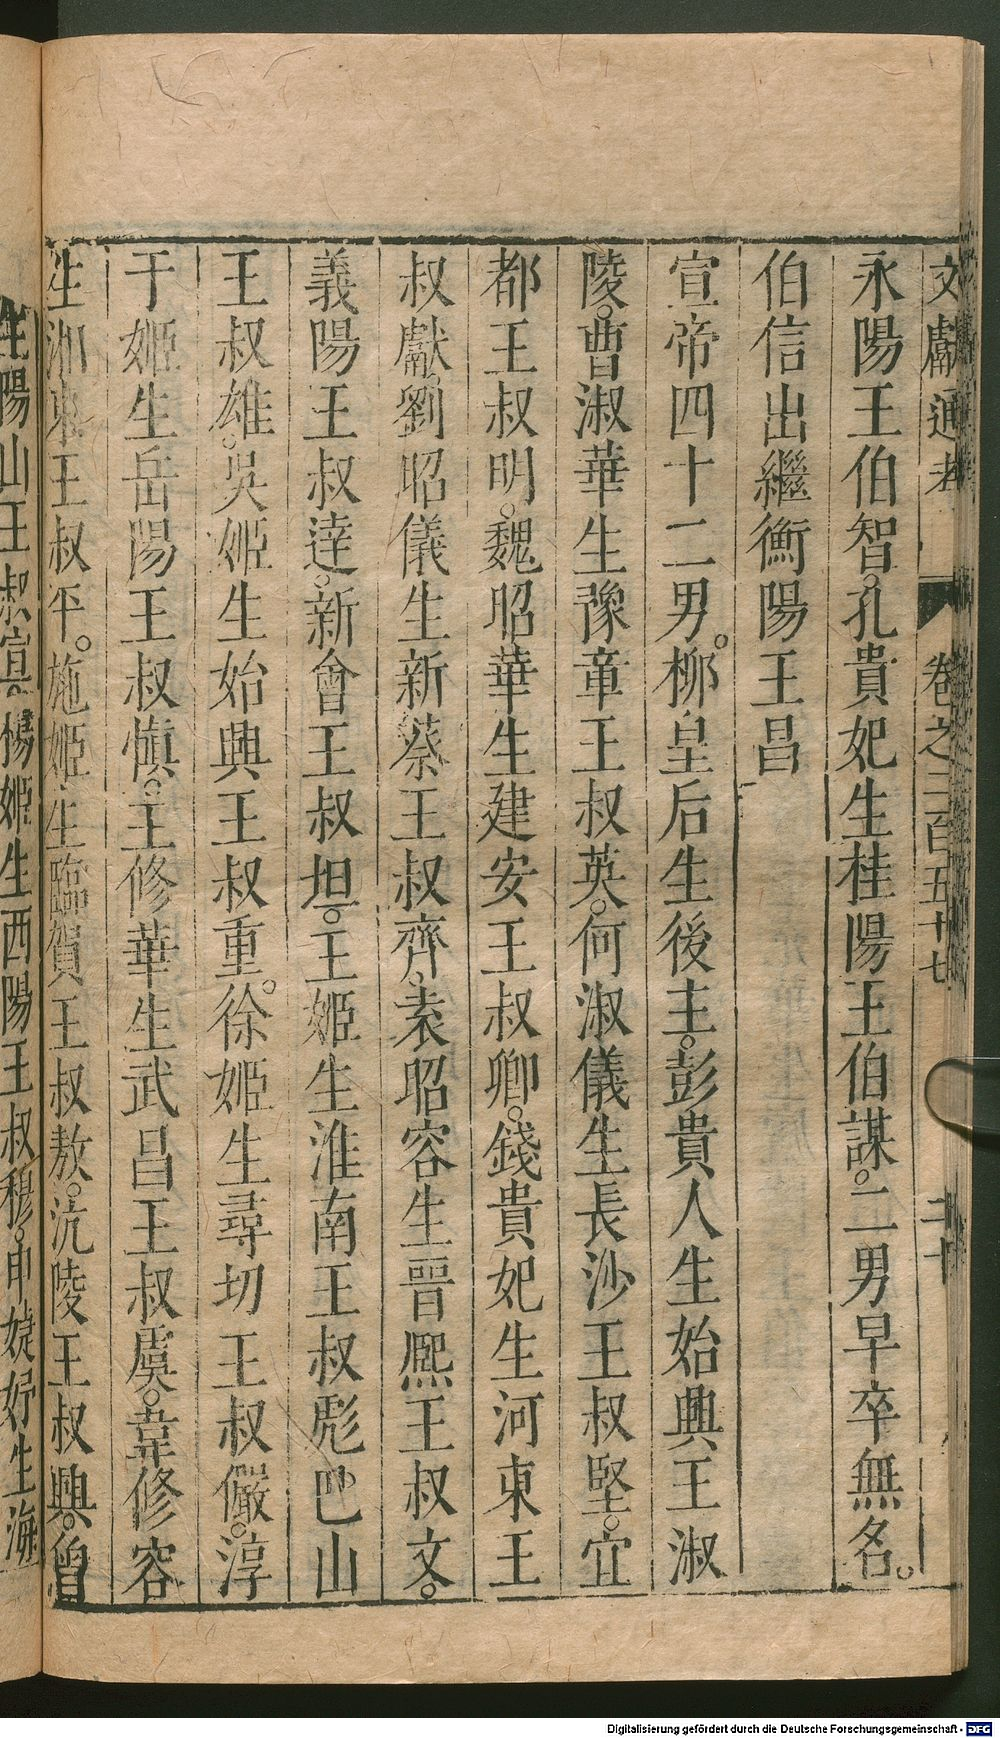 文獻通考 卷之二百五十七 二十
永陽王伯智。孔貴妃生桂陽王伯謀。二男早卒無名。
伯信出繼衡陽王昌
宣帝四十二男。柳皇后生後主。彭貴人生始興王淑
陵。曹淑華生豫章王叔英。何淑儀生長沙王叔堅。宜
都王叔明。魏昭華生建安王叔卿。錢貴妃生河東王
叔獻。劉昭儀生新蔡王叔齊。袁昭容生晉熙王叔文。
義陽王叔達。新會王叔坦。王姬生淮南王叔彪巴山
王叔雄。吳姬生始興王叔重。徐姬生尋切王叔儼。淳
于姬生岳陽王叔慎。王修華生武昌王叔虞。韋修容
生湘東王叔平。施姬生臨賀王叔敖。沅陵王叔興。曾
生陽山王叔宣。楊姬生西陽王叔穆。申婕妤生海
Digitalisierung gefördert durch die Deutsche Forschungsgemeinschaft - DFG